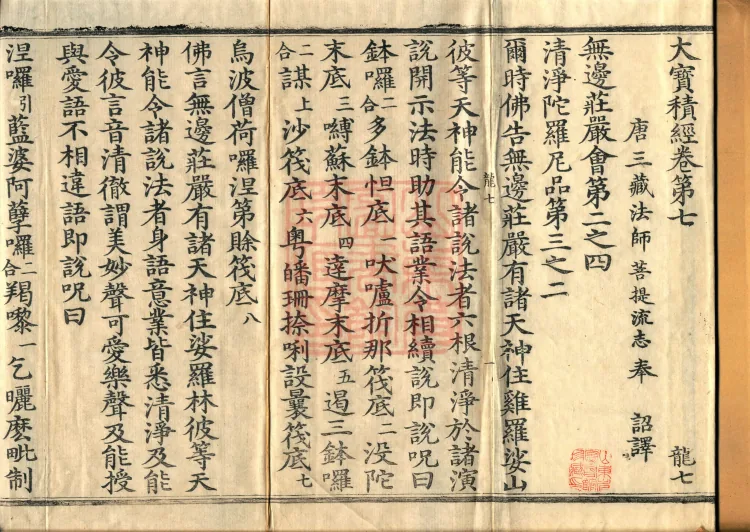 大寶積經卷第七
龍七
唐三藏法師菩提流志奉 詔譯
無邊莊嚴會第二之四
清淨陀羅尼品第三之二
爾時佛告無邊莊嚴有諸天神住雞羅娑山
龍七
一
彼等天神能令諸說法者六根清淨於諸演
說開示法時助其語業令相續說即說呪曰
鉢囉二合多鉢怛底一吠嚧折那筏底二没陀
末底三嚩蘇末底四達摩末底五遏三鉢囉
二合謀上沙筏底六粵皤珊捺唎設曩筏底七
烏波僧荷囉涅第賒筏底八
佛言無邊莊嚴有諸天神住娑羅林彼等天
神能令諸說法者身語意業皆悉清淨及能
令彼言音清徹謂美妙聲可愛樂聲及能授
與愛語不相違語即說呪曰
涅囉引藍婆阿孽囉二合羯嚟一乞曬麽毗制